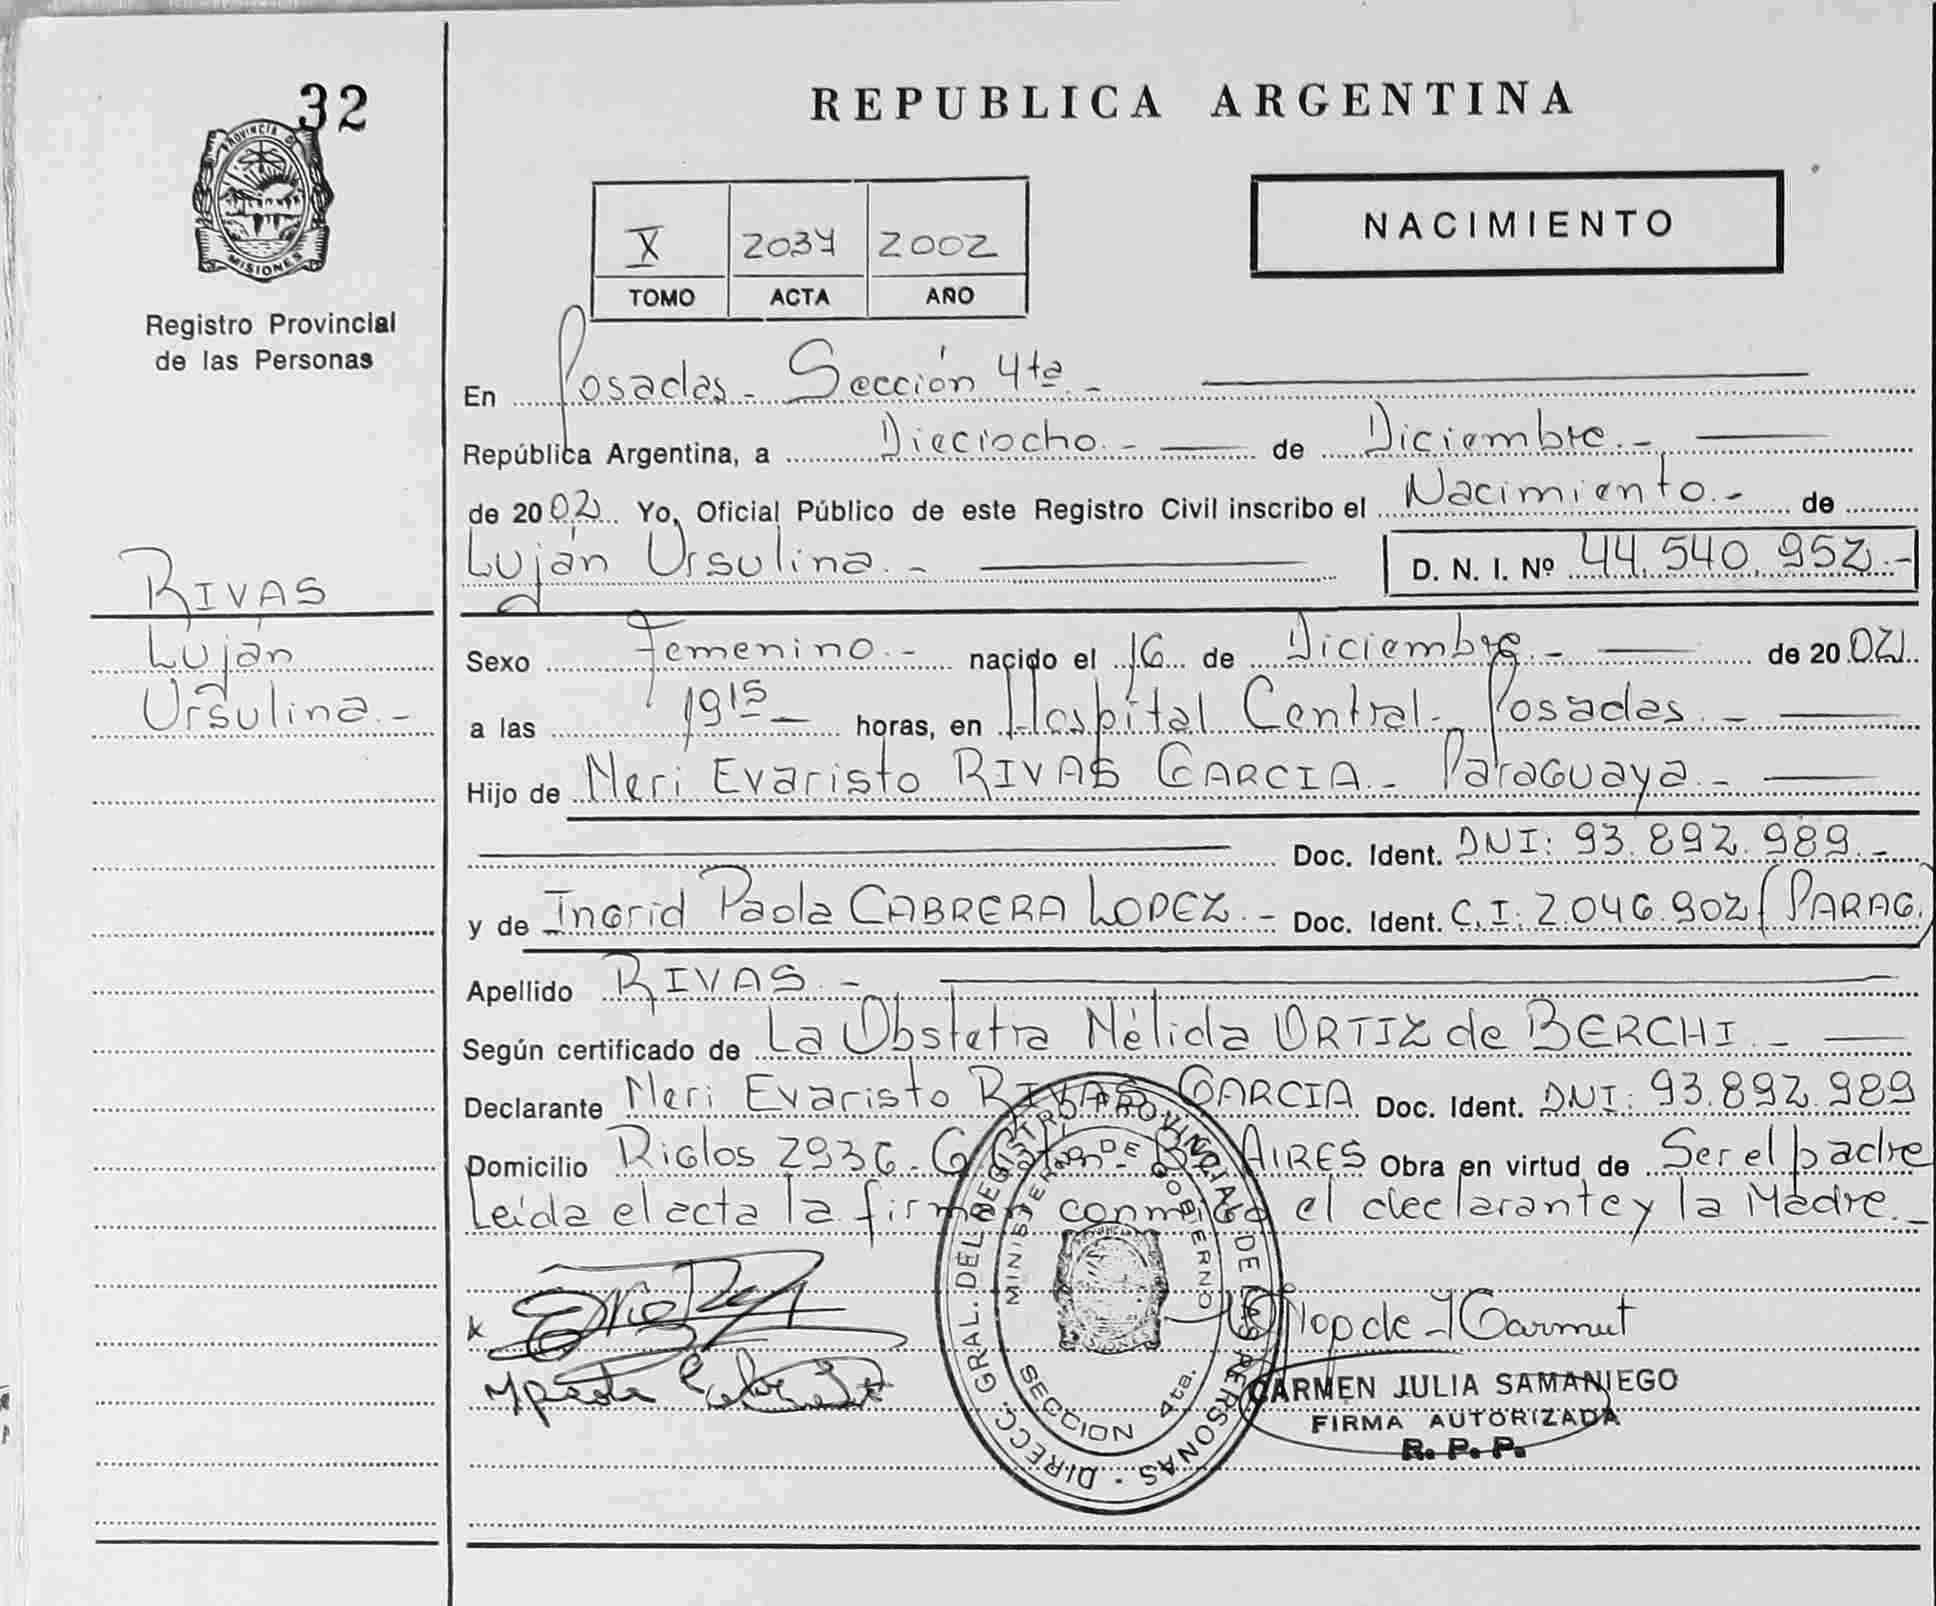 32
PROVINCIA DE
MISIONES
Registro Provincial
de las Personas
RIVAS
Luján
Ursulina.-
REPUBLICA ARGENTINA
X 2037 2002
TOMO ACTA AÑO
NACIMIENTO
En Posadas - Sección 4ta.-
República Argentina, a Dieciocho.- de Diciembre.-
de 2002. Yo, Oficial Público de este Registro Civil inscribo el Nacimiento.- de
Luján Ursulina.- D. N. I. Nº 44.540.952.-
Sexo Femenino.- nacido el 16 de Diciembre.- de 2002.
a las 19 15 - horas, en Hospital Central - Posadas.-
Hijo de Neri Evaristo RIVAS GARCIA.- Paraguaya.-
Doc. Ident. DNI: 93.892.989.-
y de Ingrid Paola CABRERA LOPEZ.- Doc. Ident. C.I: 2.046.902 (PARAG.)
Apellido RIVAS.-
Según certificado de La Obstetra Nélida ORTIZ de BERCHI.-
Declarante Neri Evaristo RIVAS GARCIA Doc. Ident. DNI: 93.892.989
Domicilio Riglos 2936 - AIRES Obra en virtud de Ser el padre
Leída el acta la firman conmigo el declarante y la Madre.-
DIRECC. GRAL. DEL REGISTRO PROVINCIAL DE LAS PERSONAS -
MINISTERIO DE GOBIERNO
SECCION 4ta.
CARMEN JULIA SAMANIEGO
FIRMA AUTORIZADA
R. P. P.